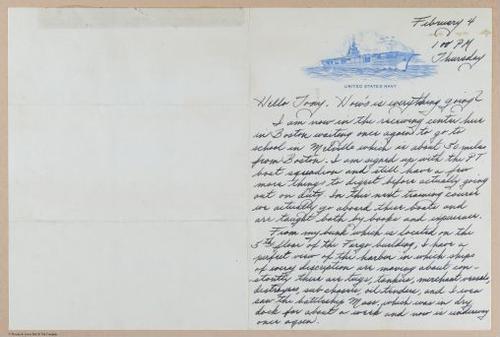 February 4
1:00 PM
Thursday
UNITED STATES NAVY
Hello Tony. How's is everything going?
I am now in the receiving center here
in Boston waiting once again to go to
school in Melville which is about 50 miles
from Boston. I am signed up with the PT
boat squadron and still have a few
more things to digest before actually going
out on duty. In this next training course
we actually go aboard these boats and
are taught both by books and experience.
From my bunk which is located on the
5th floor of the Fargo building, I have a
perfect view of the harbor in which ships
of every discription are moving about con-
stantly. There are tugs, tankers, merchant vessels,
destroyers, sub chasers, oil tenders, and I even
saw the battleship Mass. which was in dry
dock for about a week and now is underway
once again.